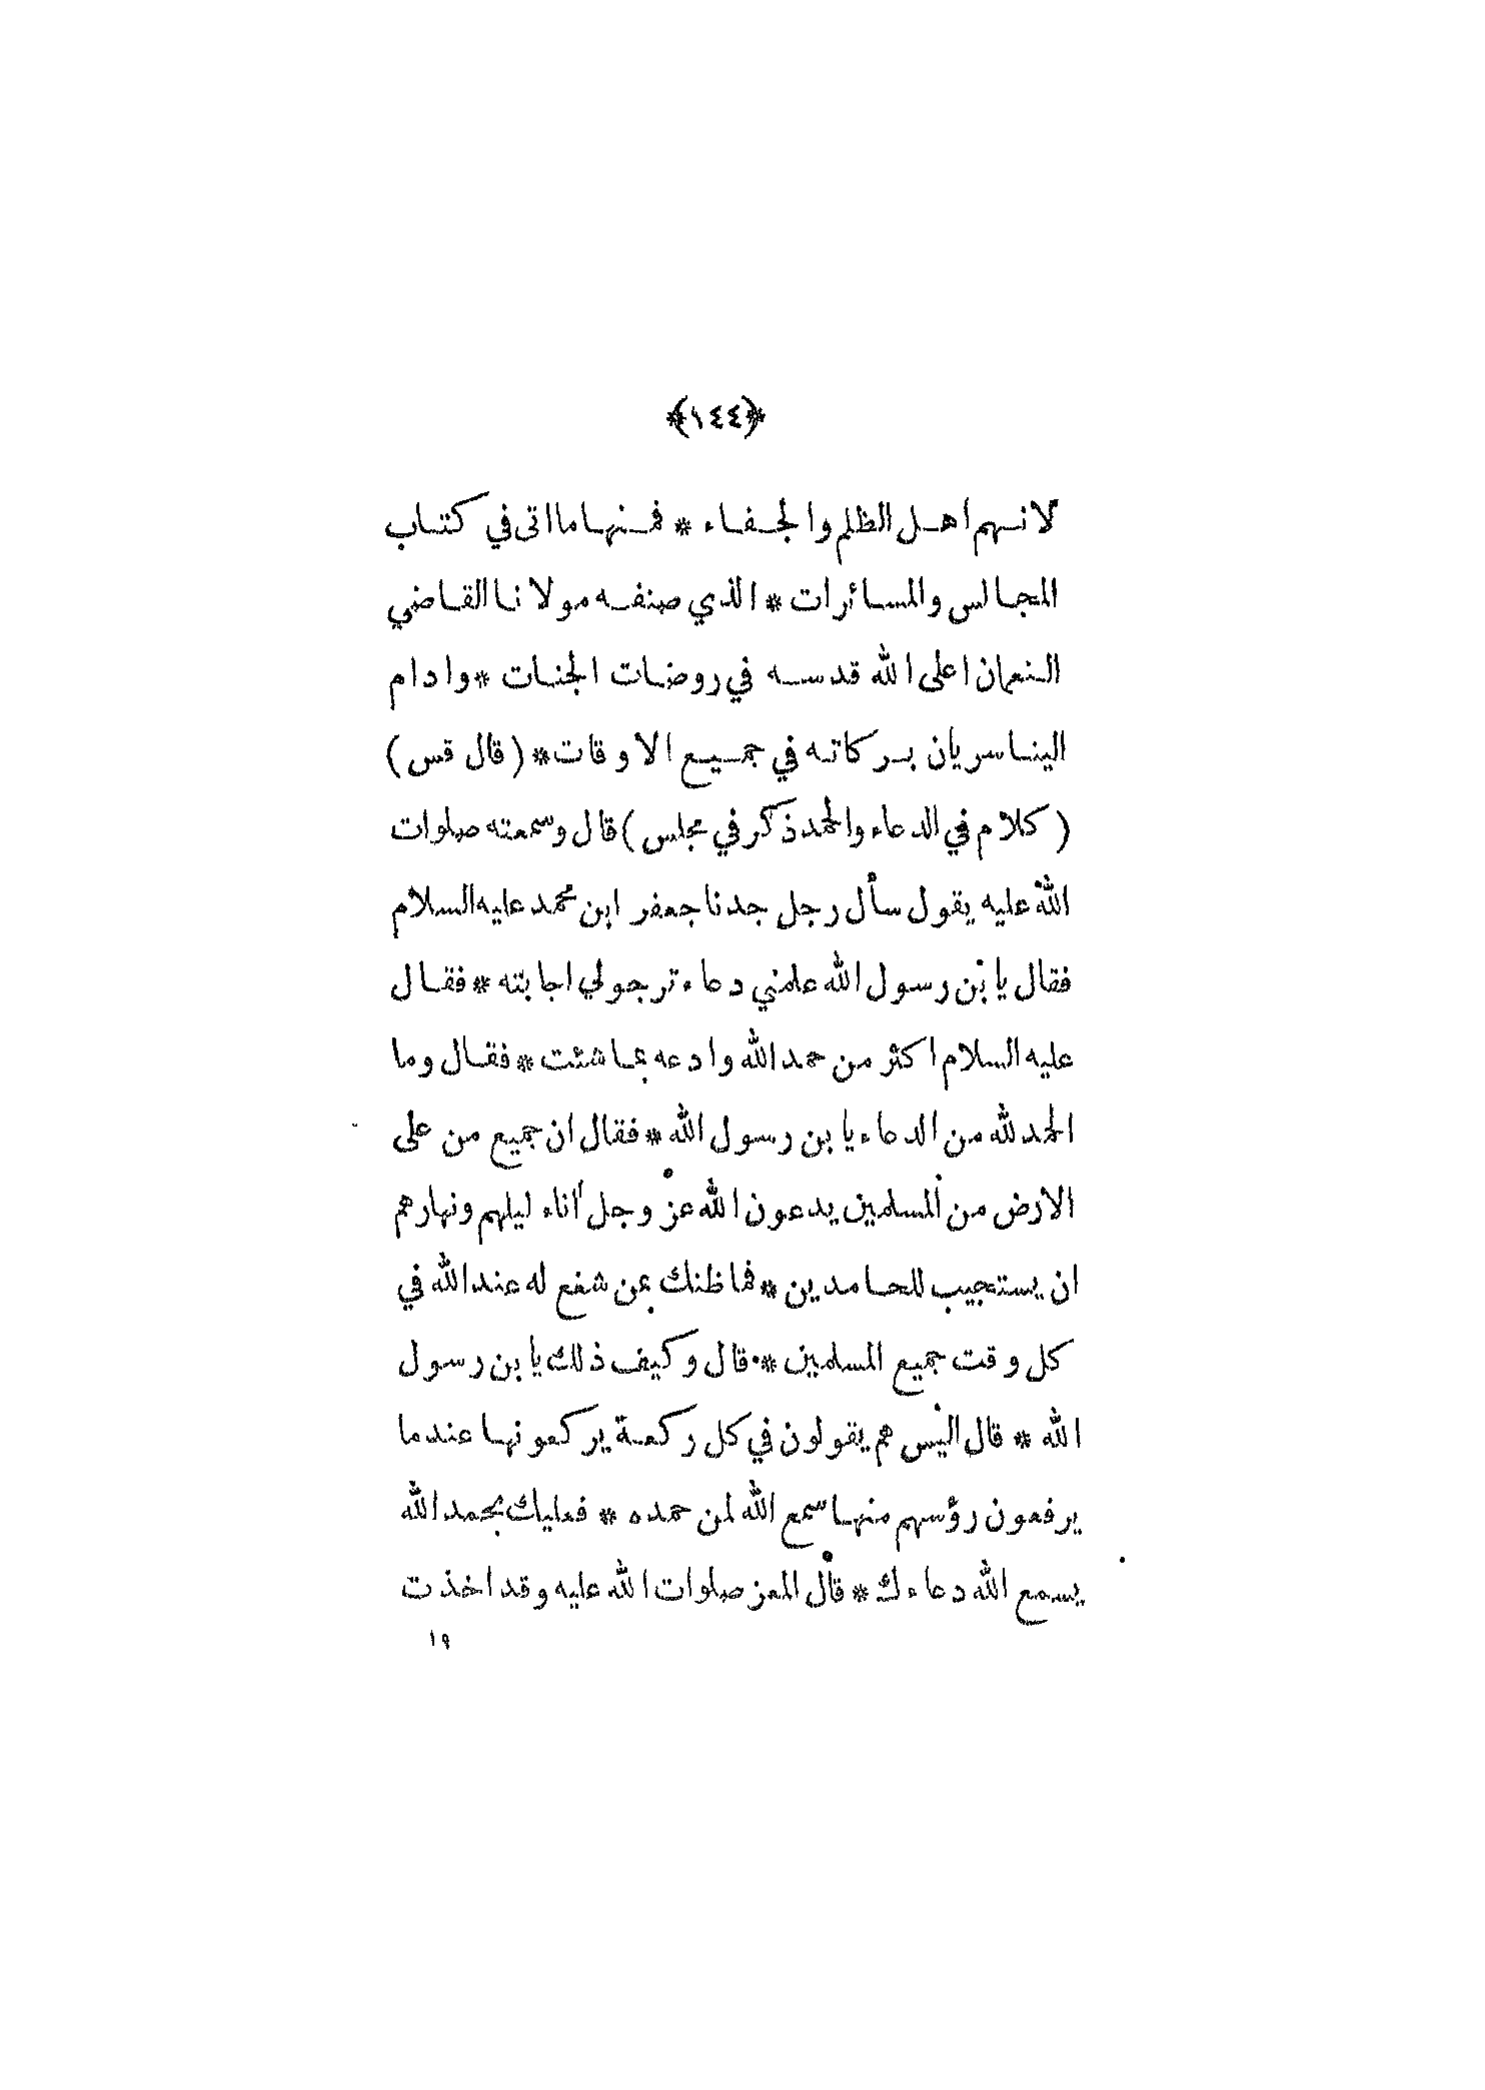 ﴿١٤٤﴾
لانهم اهل الظلم والجفاء * فمنها ما اتى في كتاب
المجالس والمسائرات * الذي صنفه مولانا القاضي
النعمان اعلى الله قدسه في روضات الجنات * وادام
الينا سريان بركاته في جميع الاوقات * (قال قس)
(كلام في الدعاء والحمد ذكر في مجلس) قال وسمعته صلوات
الله عليه يقول سأل رجل جدنا جعفر ابن محمد عليه السلام
فقال يا بن رسول الله علمني دعاء ترجو لي اجابته * فقال
عليه السلام اكثر من حمد الله وادعه بما شئت * فقال وما
الحمد لله من الدعاء يا بن رسول الله * فقال ان جميع من على
الارض من المسلمين يدعون الله عز وجل آناء ليلهم ونهارهم
ان يستجيب للحامدين * فما ظنك بمن شفع له عند الله في
كل وقت جميع المسلمين * قال وكيف ذلك يا بن رسول
الله * قال اليس هم يقولون في كل ركعة يركعونها عندما
يرفعون رؤسهم منها سمع الله لمن حمده * فعليك بحمد الله
يسمع الله دعاءك * قال المعز صلوات الله عليه وقد اخذت
١٩